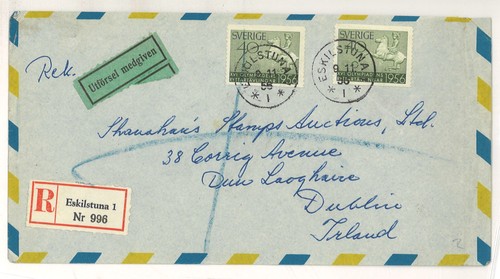 Rek.
Utförsel medgiven
SVERIGE
40
1956
ESKILSTUNA
9.11
56
* 1 *
SVERIGE
1956
ESKILSTUNA
9.11
56
* 1 *
Shanahan's Stamps Auctions, Ltd.
38 Corrig Avenue
Dun Laoghaire
Dublin
Irland
R
Eskilstuna 1
Nr 996